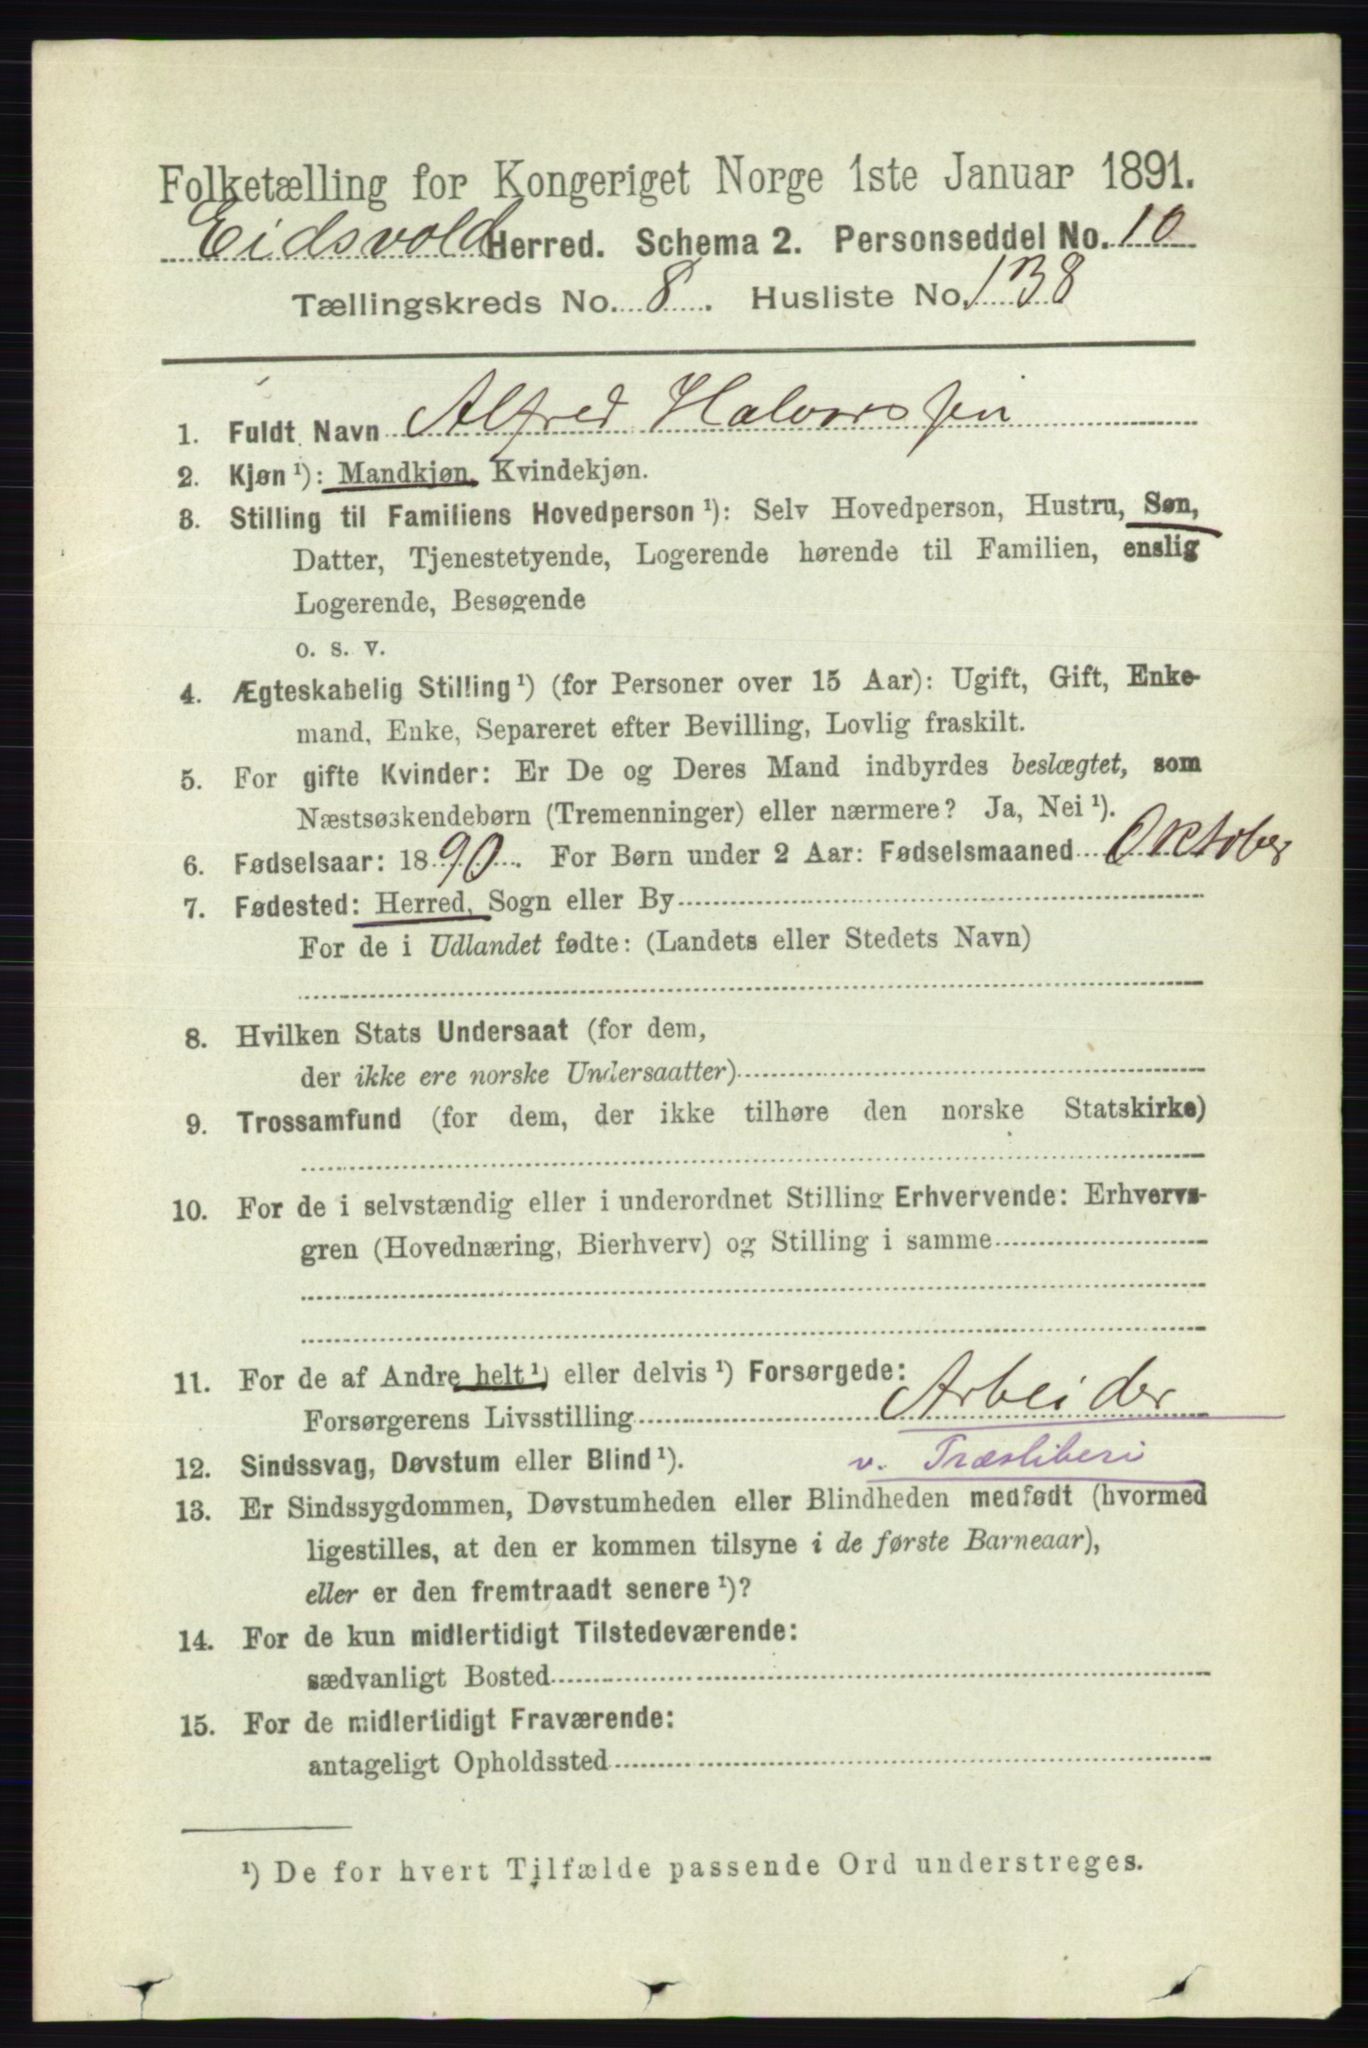 Folketælling for Kongeriget Norge 1ste Januar 1891.
Eidsvold Herred. Schema 2. Personseddel No. 10
Tællingskreds No. 8. Husliste No. 138
1. Fuldt Navn Alfred Halvorssen
2. Kjøn ¹): Mandkjøn, Kvindekjøn.
3. Stilling til Familiens Hovedperson ¹): Selv Hovedperson, Hustru, Søn,
Datter, Tjenestetyende, Logerende hørende til Familien, enslig
Logerende, Besøgende
o. s. v.
4. Ægteskabelig Stilling ¹) (for Personer over 15 Aar): Ugift, Gift, Enke-
mand, Enke, Separeret efter Bevilling, Lovlig fraskilt.
5. For gifte Kvinder: Er De og Deres Mand indbyrdes beslægtet, som
Næstsøskendebørn (Tremenninger) eller nærmere? Ja, Nei ¹).
6. Fødselsaar: 1890. For Børn under 2 Aar: Fødselsmaaned Oktober
7. Fødested: Herred, Sogn eller By
For de i Udlandet fødte: (Landets eller Stedets Navn)
8. Hvilken Stats Undersaat (for dem,
der ikke ere norske Undersaatter)
9. Trossamfund (for dem, der ikke tilhøre den norske Statskirke)
10. For de i selvstændig eller i underordnet Stilling Erhvervende: Erhvervs-
gren (Hovednæring, Bierhverv) og Stilling i samme
11. For de af Andre helt ¹) eller delvis ¹) Forsørgede:
Forsørgerens Livsstilling Arbeider
12. Sindssvag, Døvstum eller Blind ¹). v. Træsliberi
13. Er Sindssygdommen, Døvstumheden eller Blindheden medfødt (hvormed
ligestilles, at den er kommen tilsyne i de første Barneaar),
eller er den fremtraadt senere ¹)?
14. For de kun midlertidigt Tilstedeværende:
sædvanligt Bosted
15. For de midlertidigt Fraværende:
antageligt Opholdssted
¹) De for hvert Tilfælde passende Ord understreges.